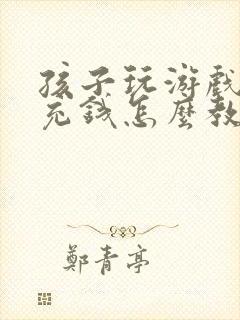 孩子玩游戲
充錢怎麽教
鄭青亭